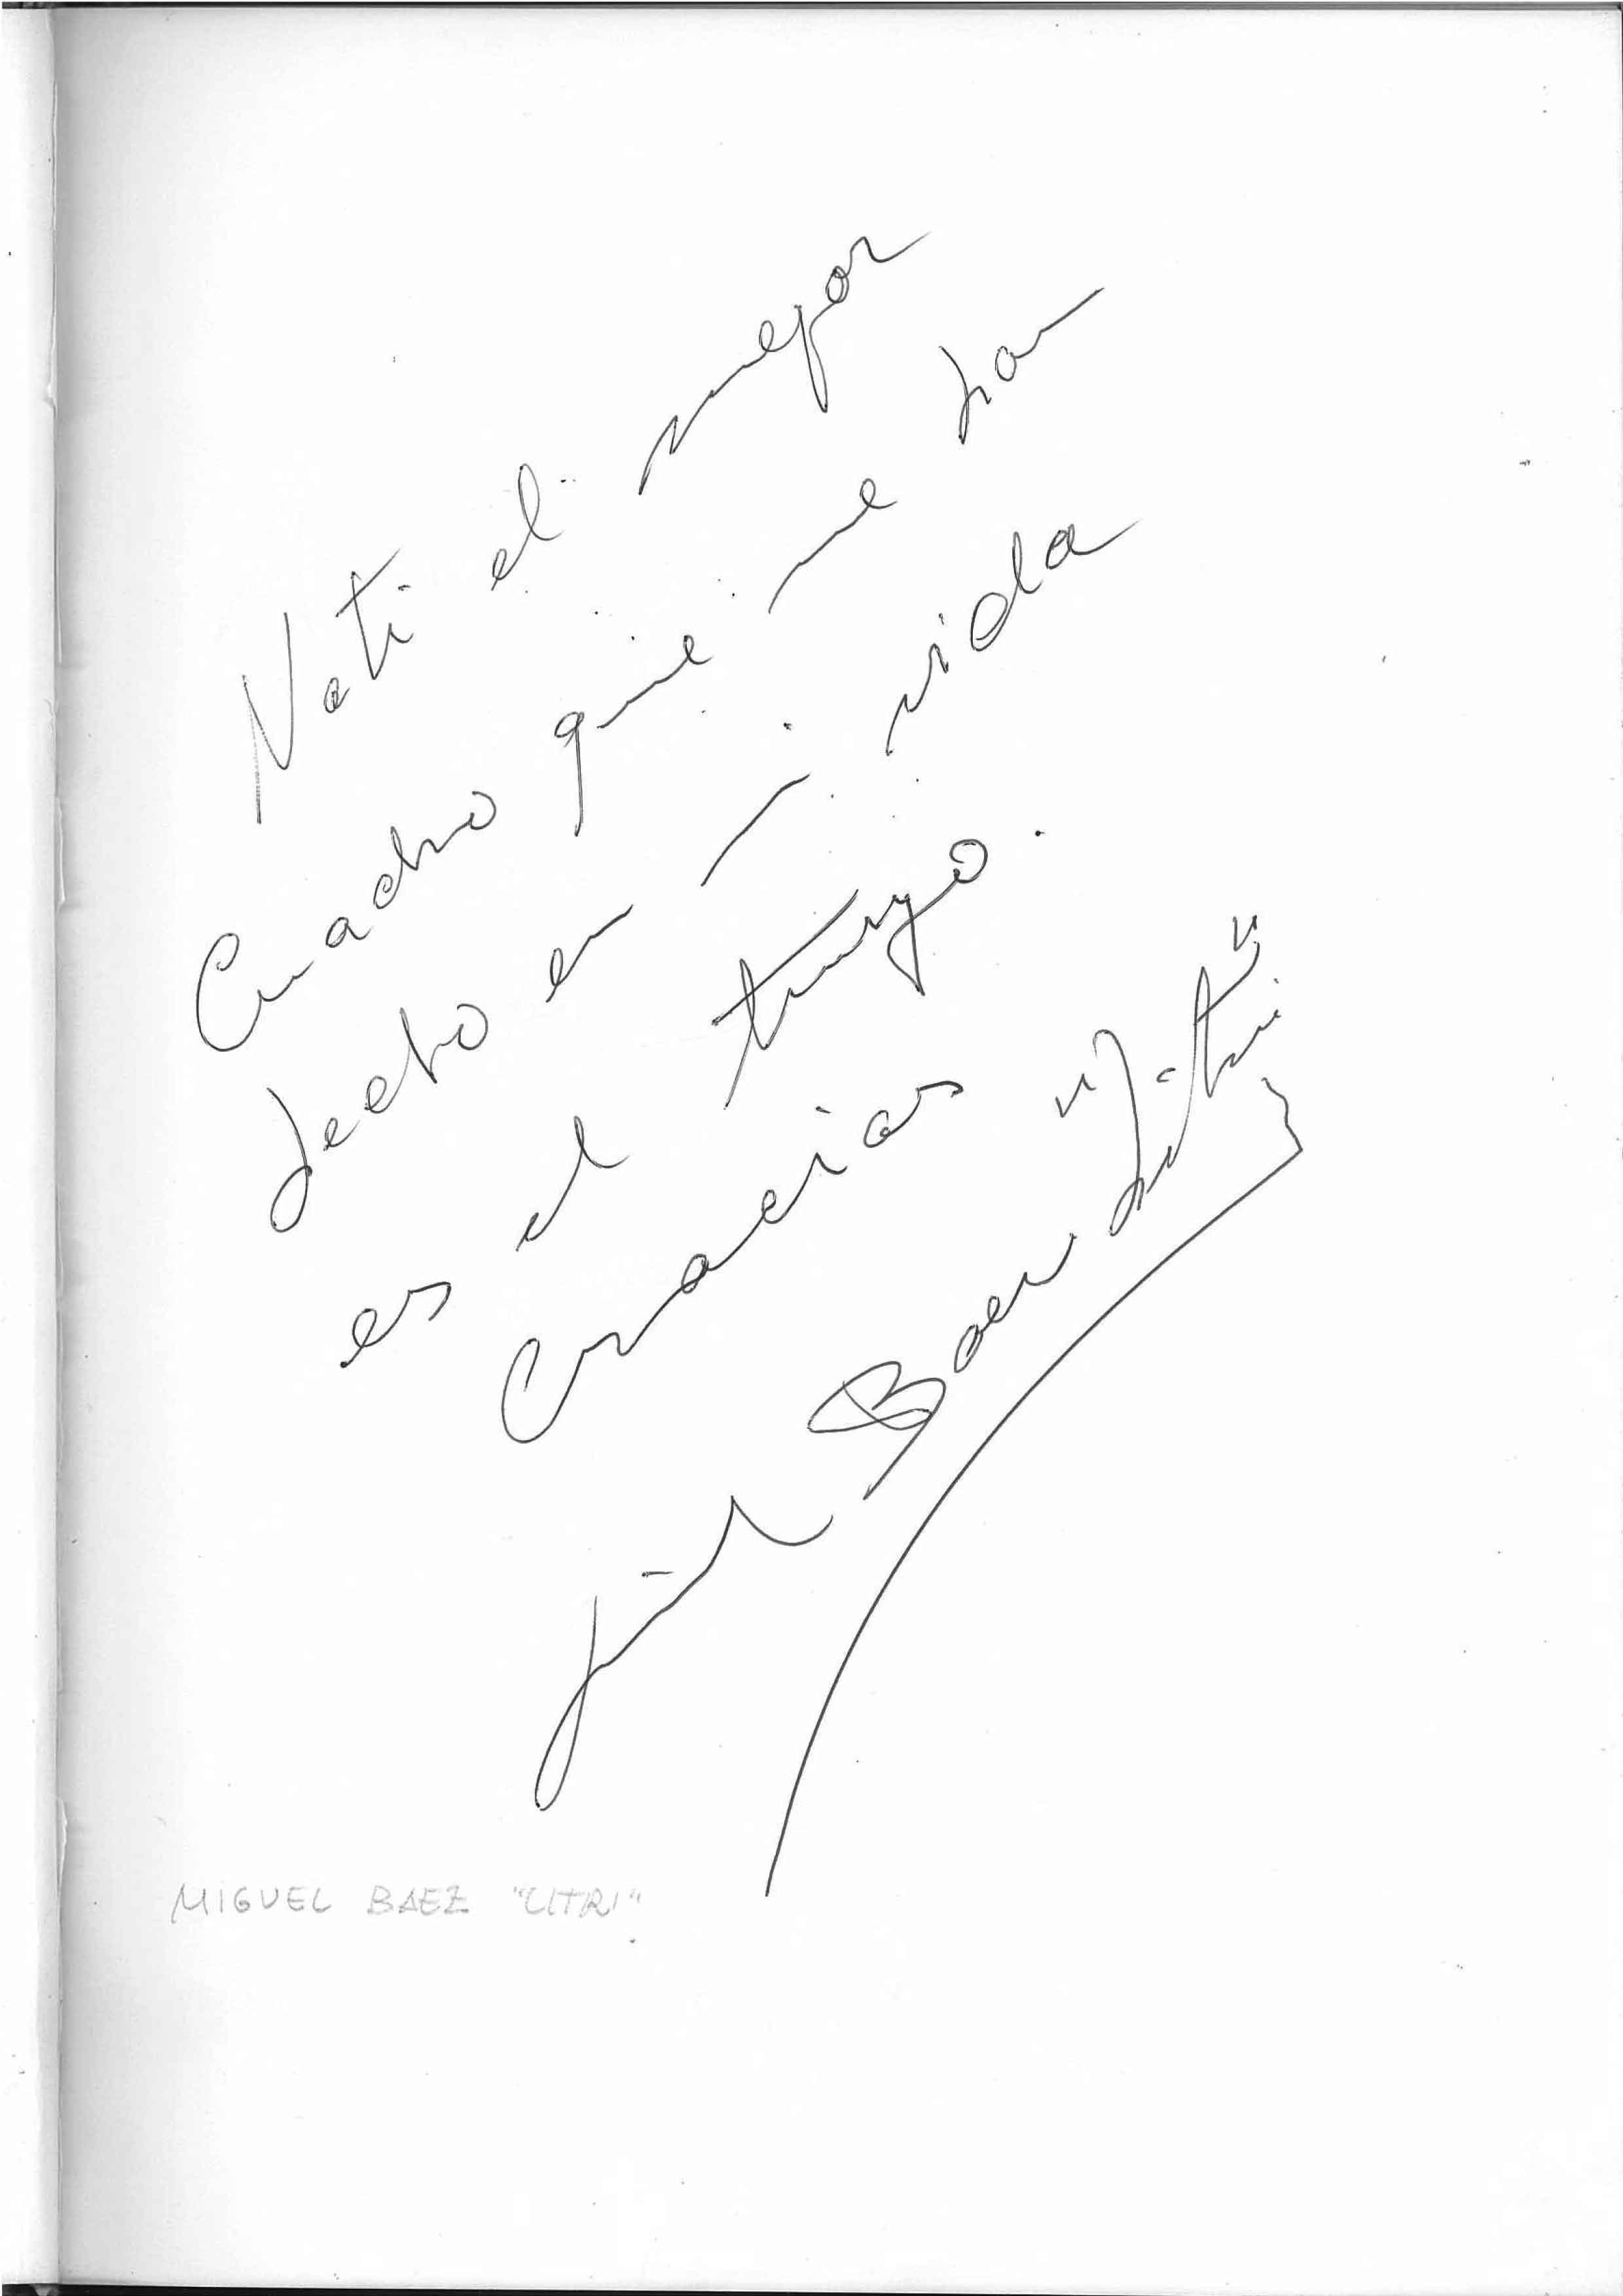 Nati el mejor
Cuadro que me han
hecho en mi vida
es el tuyo.
Gracias
Miguel Baez "Litri"
MIGUEL BAEZ "LITRI"